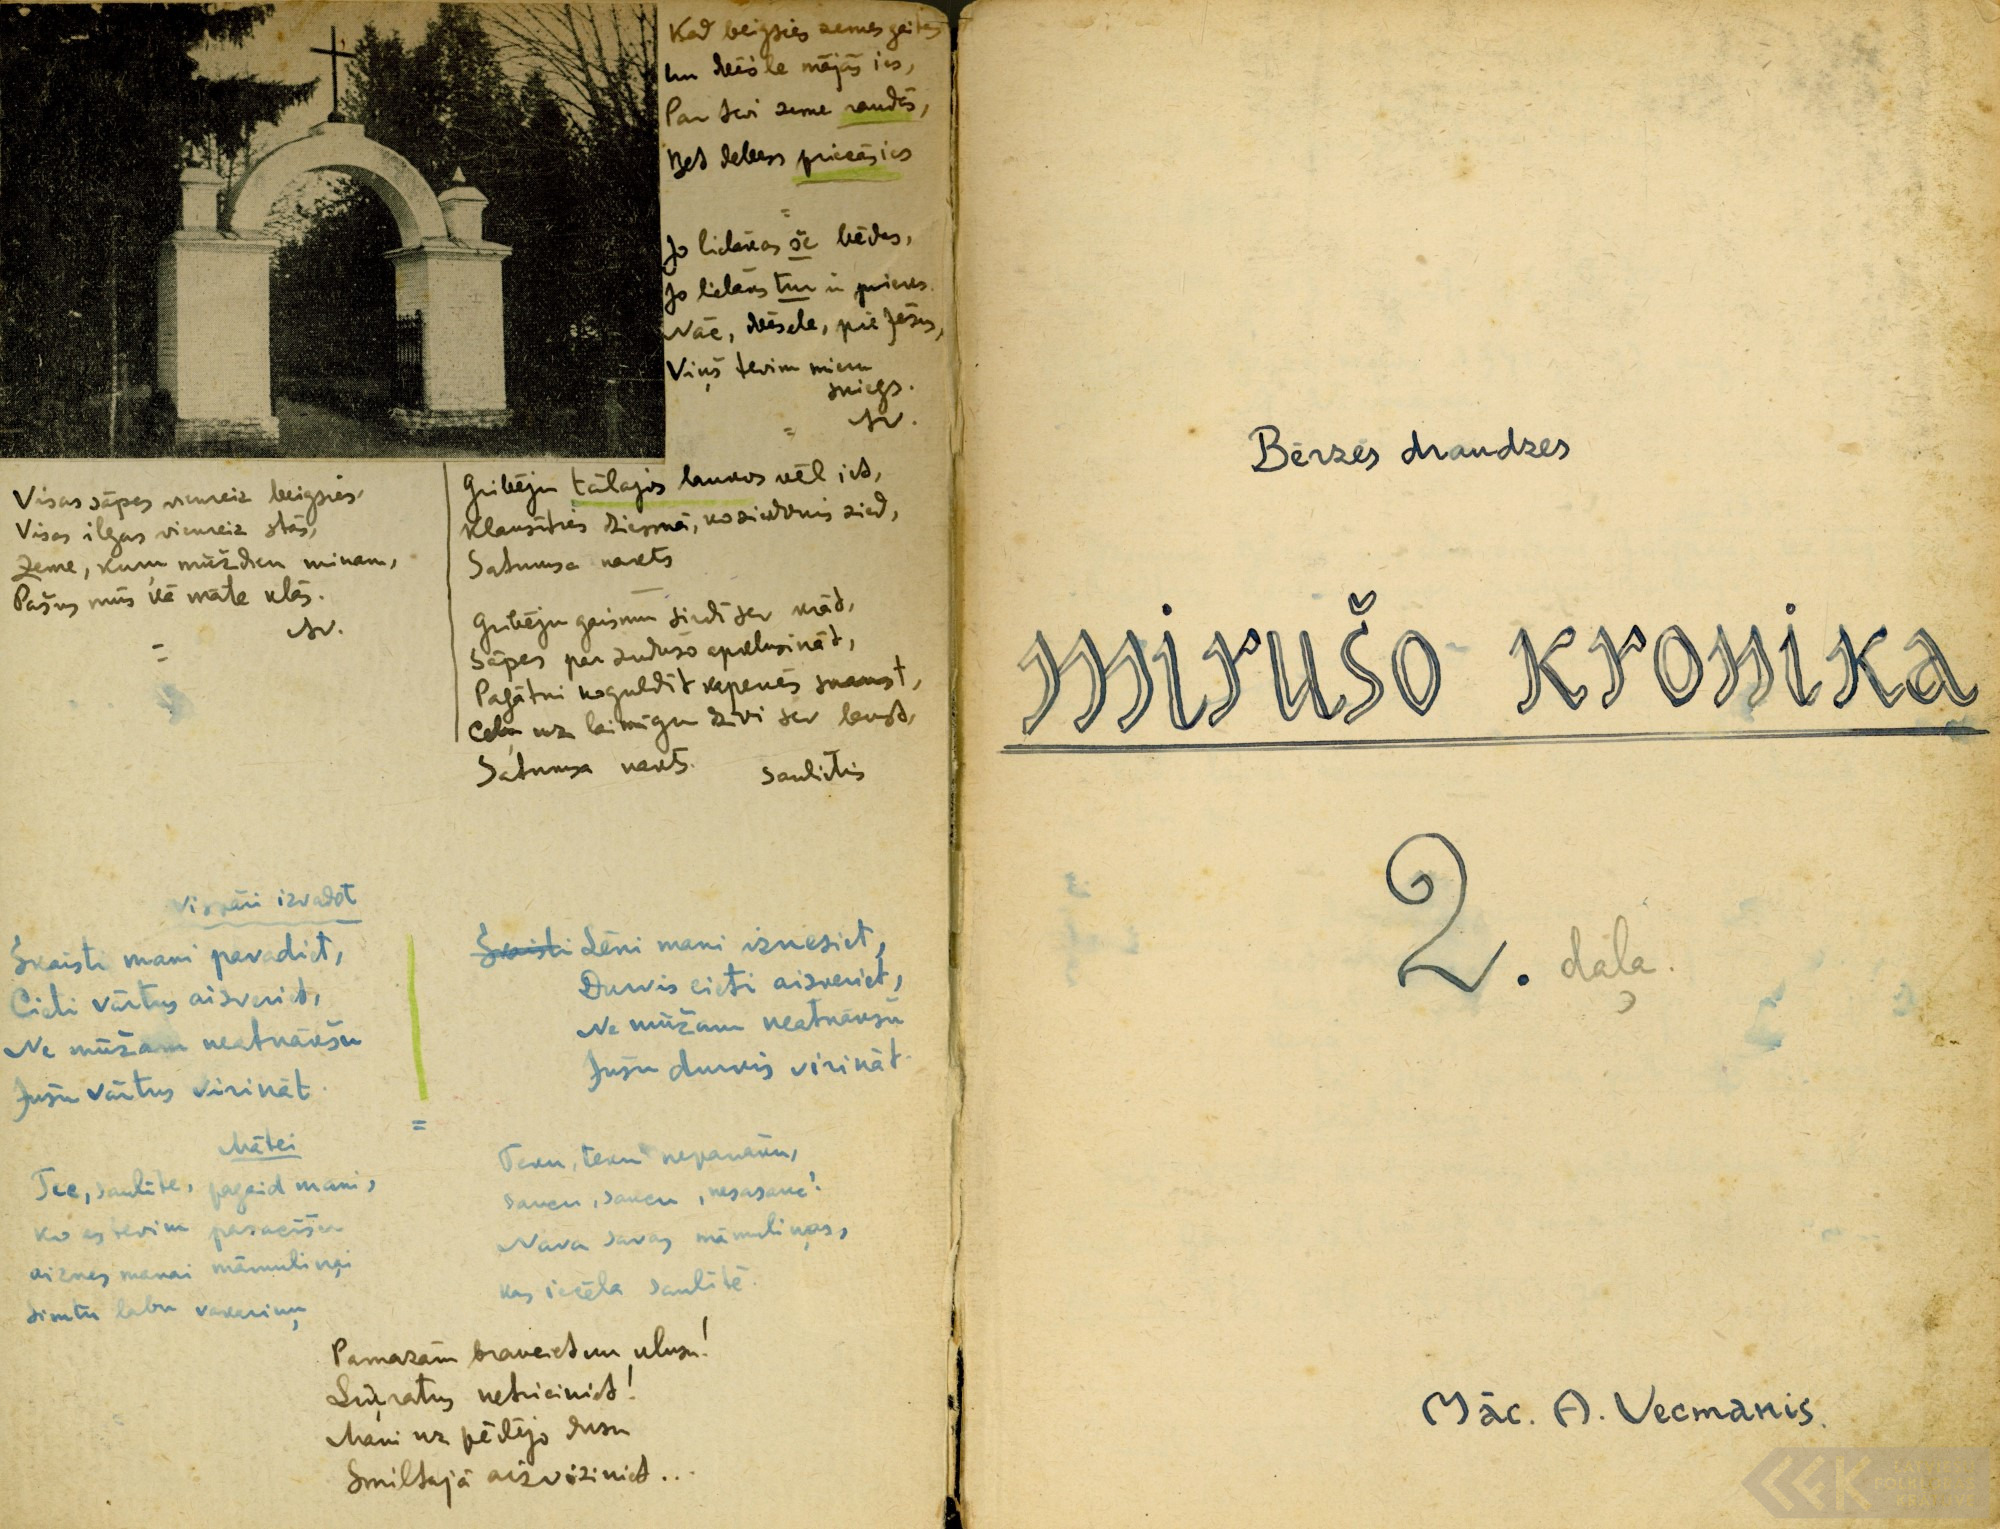 Kad beigsies zemes gaitas
un dvēs'le mājās ies,
Par tevi zeme raudās,
Bet debess priecāsies
=
Jo lielākas še bēdas,
Jo lielāks tur ir prieks.
Nāc, dvēsele, pie Jēzus,
Viņš tevim mieru
sniegs.
=
Visas sāpes vienreiz beigsies,
Visas ilgas vienreiz stās,
Zeme, kuru mūždien minam,
Pašus mūs kā māte klās.
=
Gribēju tālajos laukos vēl iet,
Klausīties dziesmā, ko ziedonis zied,
Satumsa nakts
Gribēju gaismu sirdī sev krāt,
Sāpes par zudušo apklusināt,
Pagātni noguldīt kapenēs snaust,
Ceļu uz laimīgu dzīvi sev laust,
Satumsa nakts.
Saulietis
izvadot
Skaisti mani pavadiet,
Cieti vārtus aizveriet,
Ne mūžam neatnākšu
Jūsu vārtus virināt.
=
Skaisti Lēni mani iznesiet,
Durvis cieti aizveriet,
Ne mūžam neatnākšu
Jūsu durvis virināt.
Mātei
Tec, saulīte, pagaid mani,
Ko es tevim pasacīšu
aiznes manai māmuliņai
simtu labu vakariņu
Teku, teku nepanāku,
saucu, saucu, nesasauc!
Nava savas māmuliņas,
kas iecēla saulītē.
Pamazām brauciet un klusu!
Lūpratus netriciniet!
Mani uz pēdējo dusu
Smiltajā aizviziniet...
Bērzes draudzes
mirušo kronika
2. daļa.
Māc. A. Vecmanis.
LFK
LATVIEŠU
FOLKLORAS
KRĀTUVE